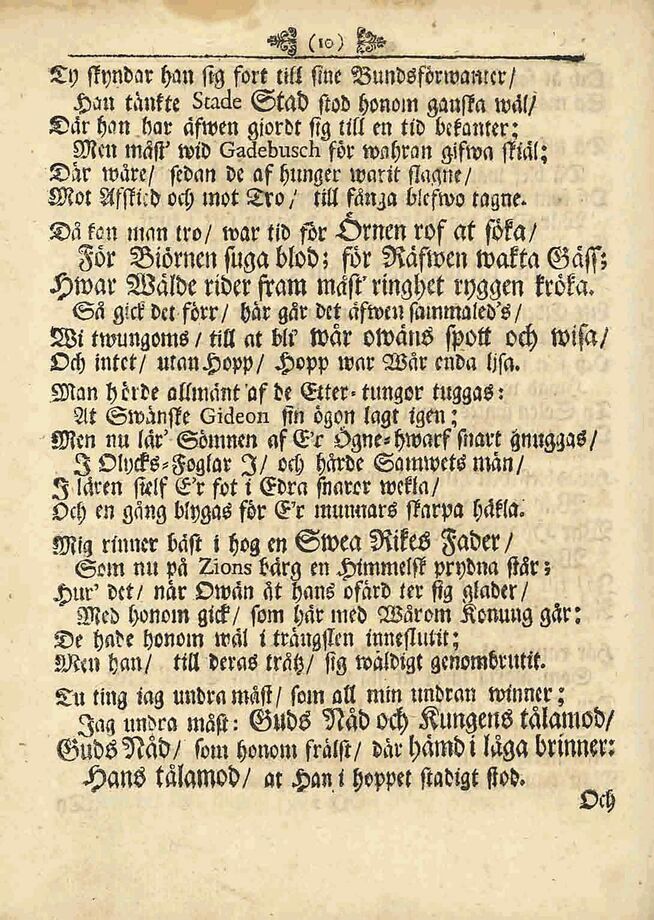 (10)
Ty skyndar han sig fort till sine Bundsförwanter/
Han tänkte Stade Stad stod honom ganska wäl/
Där han har äfwen giordt sig till en tid bekanter;
Men mäst' wid Gadebusch för wahran gifwa skiäl;
Där wäre/ sedan de af hunger warit slagne/
Mot Afskied och mot Tro/ till fånga blefwo tagne.
Då kan man tro/ war tid för Örnen rof at söka/
För Biörnen suga blod; för Räfwen wakta Gäss;
Hwar Wälde rider fram mäst' ringhet ryggen kröka.
Så gick det förr/ här går det äfwen sammaled's/
Wi twungoms/ till at bli' wår owäns spott och wisa/
Och intet/ utan Hopp/ Hopp war Wår enda lisa.
Man hörde allmänt af de Etter-tungor tuggas:
At Swänske Gideon sin ögon lagt igen;
Men nu lär' Sömnen af E'r Ögne-hwarf snart gnuggas/
I Olycks-Foglar I/ och hårde Samwets män/
I lären sielf E'r fot i Edra snaror wekla/
Och en gång blygas för E'r munnars skarpa häkla.
Mig rinner bäst i hog en Swea Rikes Fader/
Som nu på Zions bärg en Himmelsk prydna står;
Hur' det/ när Owän åt hans ofärd ter sig glader/
Med honom gick/ som här med Wårom Konung går:
De hade honom wäl i trängslen inneslutit;
Men han/ till deras tråtz/ sig wäldigt genombrutit.
Tu ting iag undra måst/ som all min undran winner;
Jag undra måst: Guds Nåd och Kungens tålamod/
Guds Nåd/ som honom frälst/ där hämd i låga brinner:
Hans tålamod/ at Han i hoppet stadigt stod.
Och